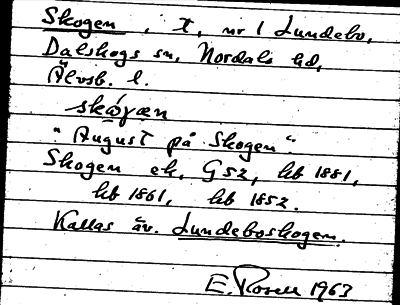 Skogen, t, nr 1 Lundebo,
Dalskogs sn, Nordals hd,
Älvsb. l.
skógæn
"August på Skogen".
Skogen ek, G52, hb 1881,
hb 1861, hb 1852.
Kallas äv. Lundeboskogen.
E. Rosell 1963